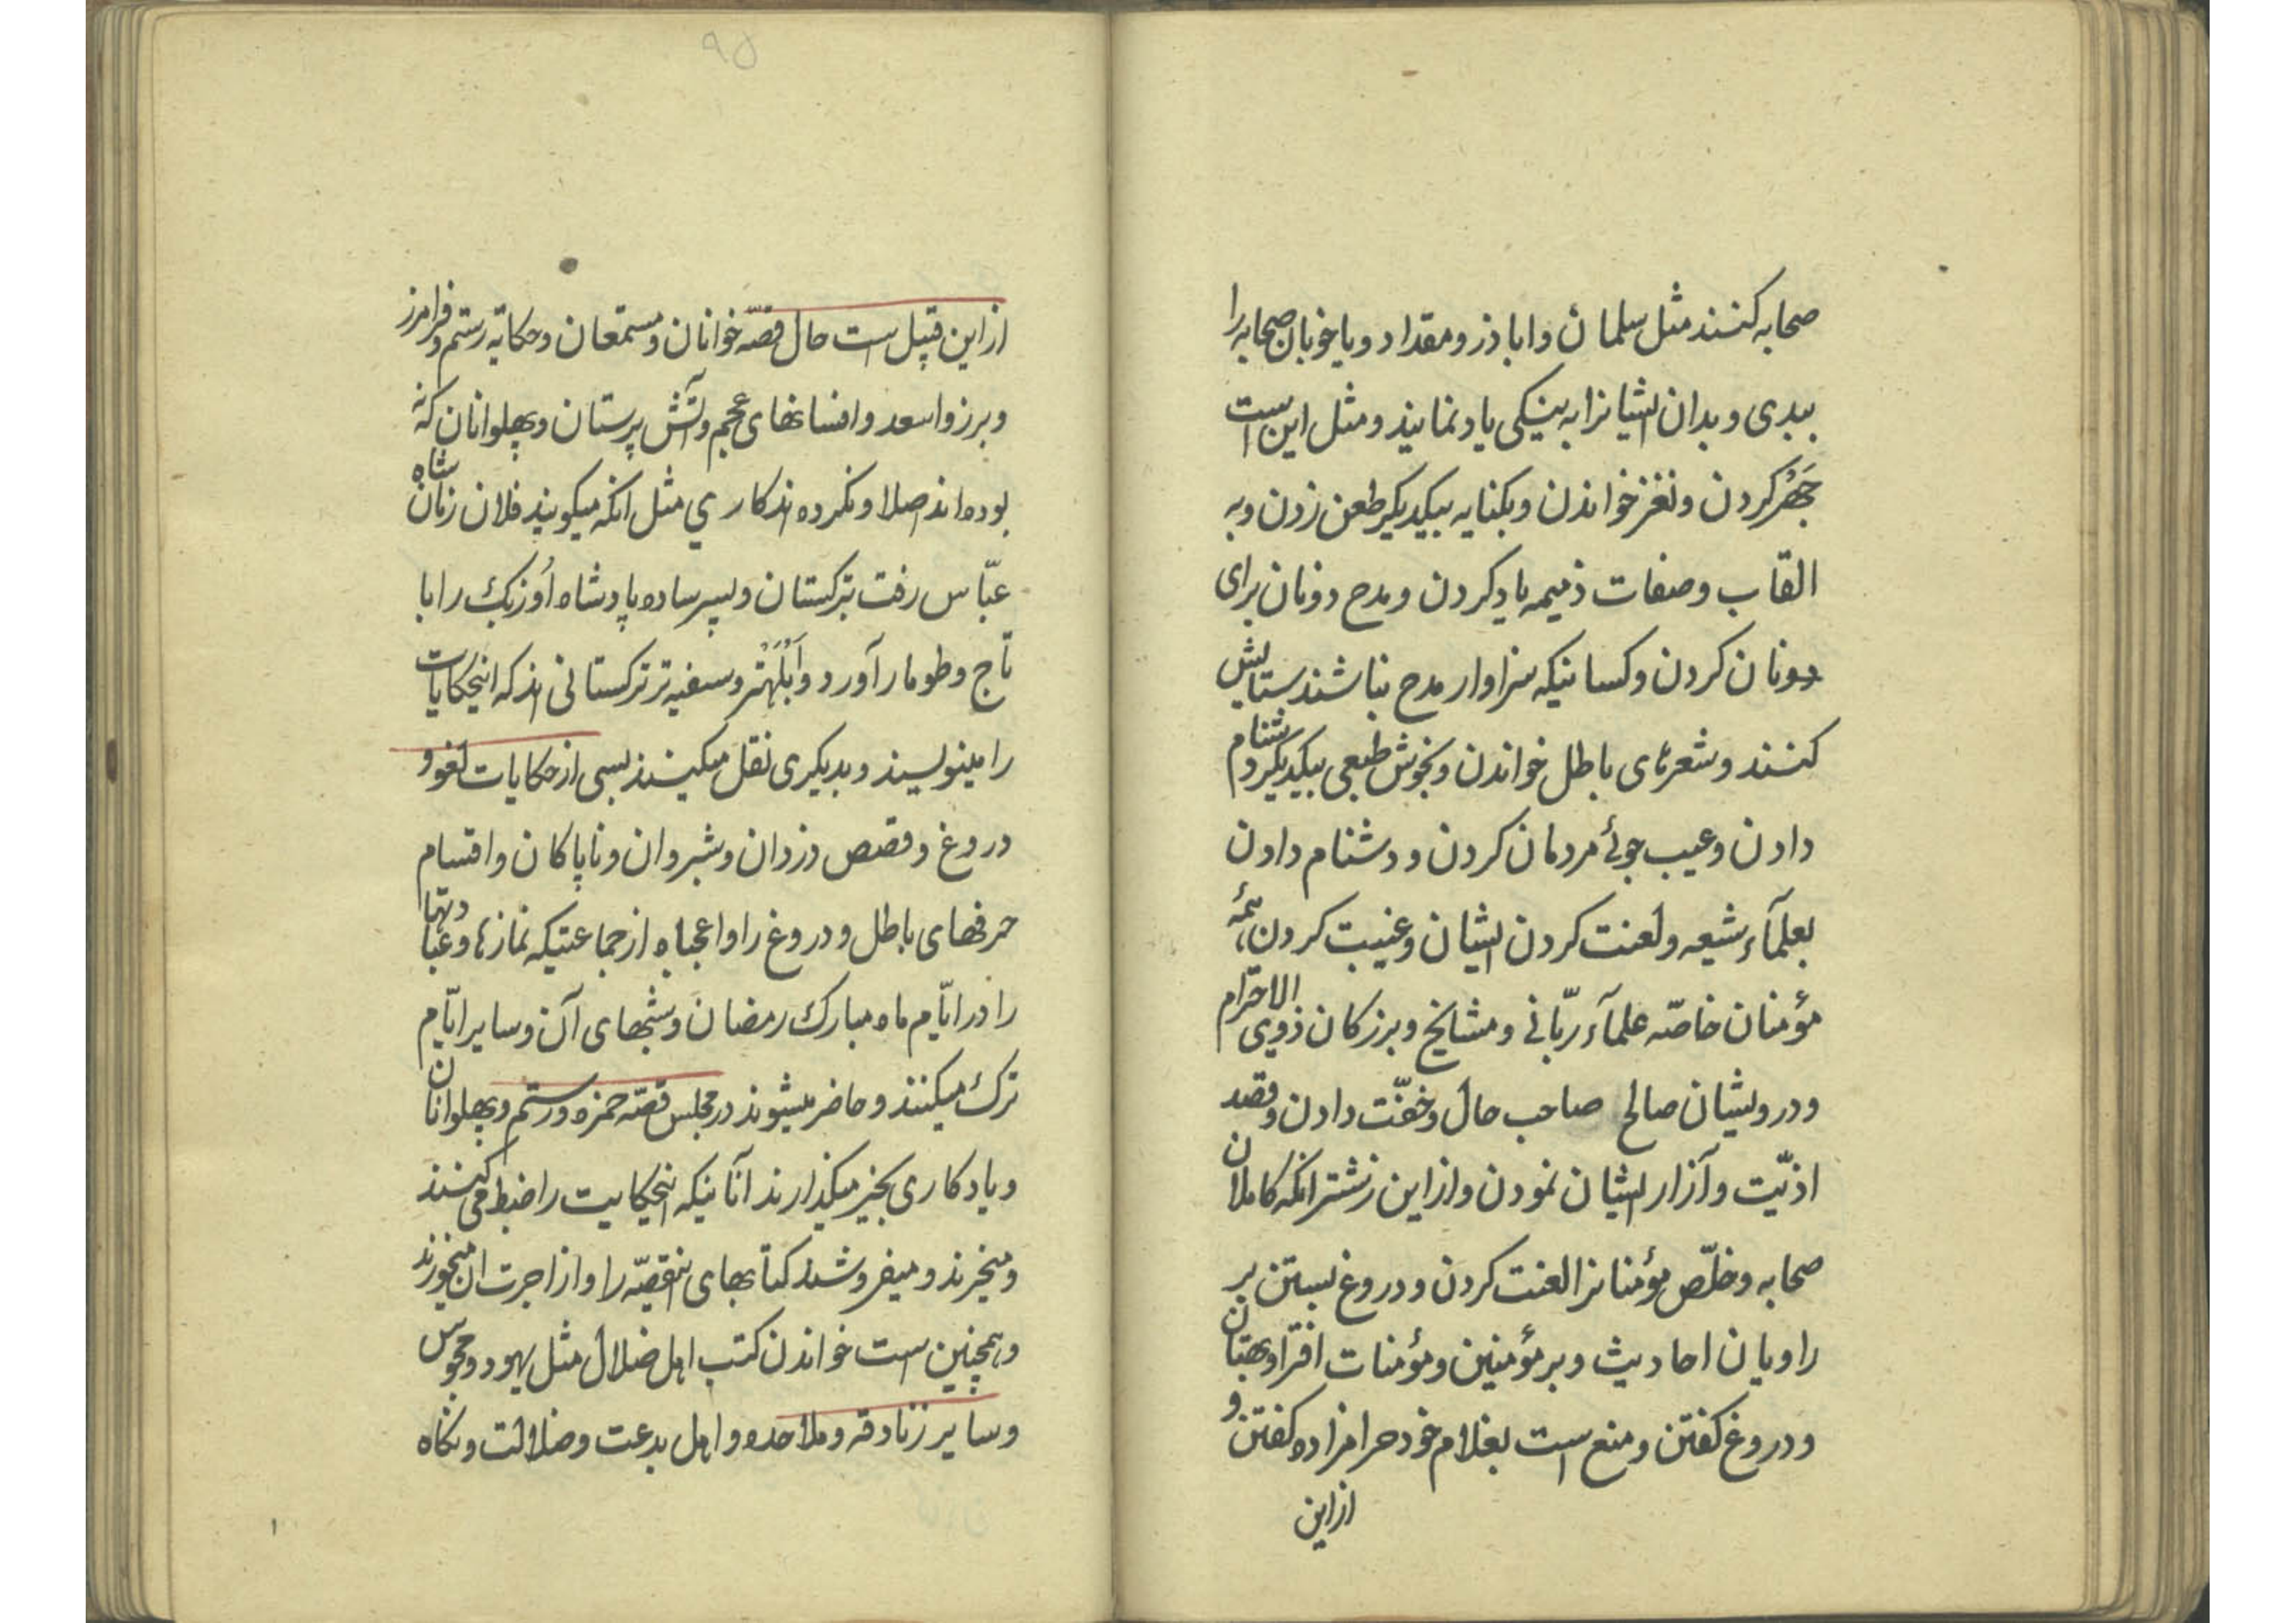 صحابه کنند مثل سلمان و اباذر و مقداد و یا خوبان صحابه را
ببدی و بدان ایشانرا به نیکی یاد نمایند و مثل این است
جَهْر کردن و نغز خواندن و بکنایه بیکدیکر طعن زدن و به
القاب و صفات ذمیمه یاد کردن و مدح دونان برای
دونان کردن و کسانیکه سزاوار مدح نباشند ستایش
کنند و شعرهای باطل خواندن و بخوش طبعی بیکدیکر دشنام
دادن و عیب جوئے مردمان کردن و دشنام دادن
بعلمآء شیعه و لعنت کردن ایشان و غیبت کردن همهٔ
مؤمنان خاصّه علمآء ربّانی و مشایخ و بزرکان ذوی الاحترام
و درویشان صالح صاحب حال و خفّت دادن و قصد
اذیّت و آزار ایشان نمودن و از این زشتر انکه کاملان
صحابه و خلّص مؤمنانرا لعنت کردن و دروغ بستن بر
راویان احادیث و بر مؤمنین و مؤمنات افترا و بهتان
و دروغ کفتن و منع است بغلام خود حرامزاده کفتن و
از این
۹۵
از این قبیل است حال قصّه خوانان و مستمعان و حکایه رستم و فرامرز
و برزو اسعد و افسانهای عجم و آتش پرستان و پهلوانان که نه
بوده اند اصلا و نکرده اند کاری مثل انکه میکویند فلان زمان شاه
عبّاس رفت بترکستان و پسر ساده پادشاه اُوزبک را با
تاج و طومار آورد و اَبْلَهْتر و سفیه تر ترکستانی اند که اینحکایات
را مینویسند و بدیکری نقل میکینند بسی از حکایات لغو و
دروغ و قصص دزدان و شبروان و ناپاکان و اقسام
حرفهای باطل و دروغ را واعجباه از جماعتیکه نمازها و عبادتها
را در ایّام ماه مبارک رمضان و شبهای آن و سایر ایّام
ترک میکنند و حاضر میشوند در مجلس قصّه حمزه و رستم و پهلوانان
و یادکاری بخیر میکذارند آنانیکه اینحکایت را ضبط می کنند
و میخرند و میفروشند کتابهای اینقصّه را و از اجرت ان میخورند
و همچنین است خواندن کتب اهل ضلال مثل یهود و مجوس
و سایر زنادقه و ملاحده و اهل بدعت و ضلالت و نکاه